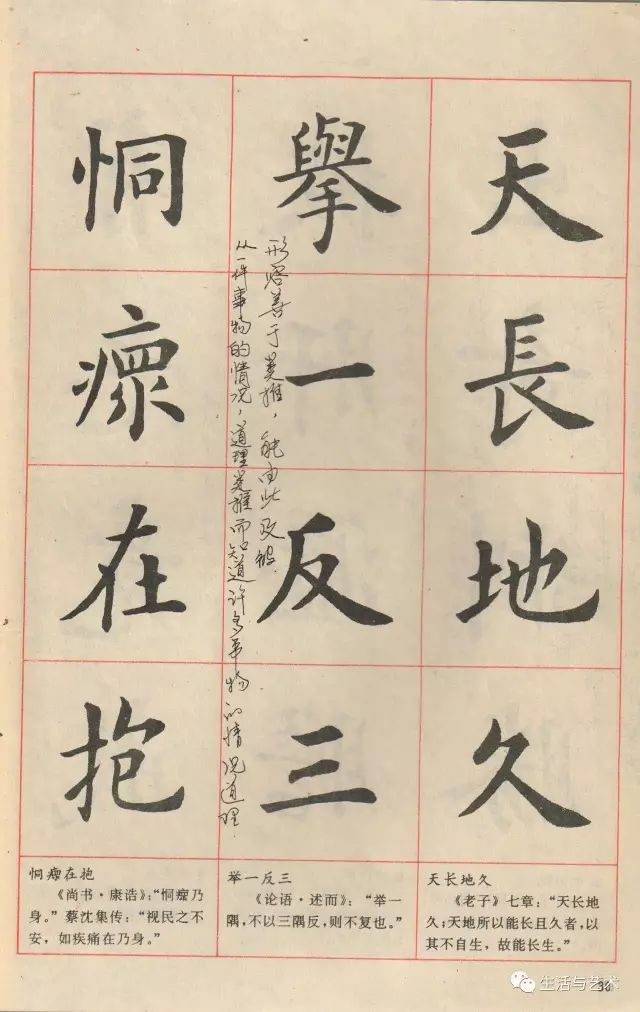 天長地久
舉一反三
形容善于类推，能由此及彼.
从一件事物的情况，道理类推而知道许多事物的情况道理.
恫瘝在抱
天长地久
《老子》七章：“天长地
久；天地所以能长且久者，以
其不自生，故能长生。”
举一反三
《论语·述而》：“举一
隅，不以三隅反，则不复也。”
恫瘝在抱
《尚书·康诰》：“恫瘝乃
身。”蔡沈集传：“视民之不
安，如疾痛在乃身。”
生活与艺术